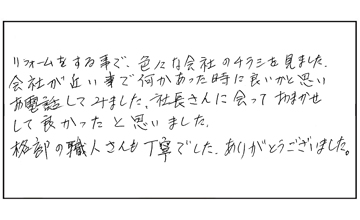 リフォームをする事で、色々な会社のチラシを見ました。
会社が近い事で何かあった時に良いかと思い
お電話してみました。社長さんに会っておまかせ
して良かったと思いました。
格部の職人さんも丁寧でした。ありがとうございました。